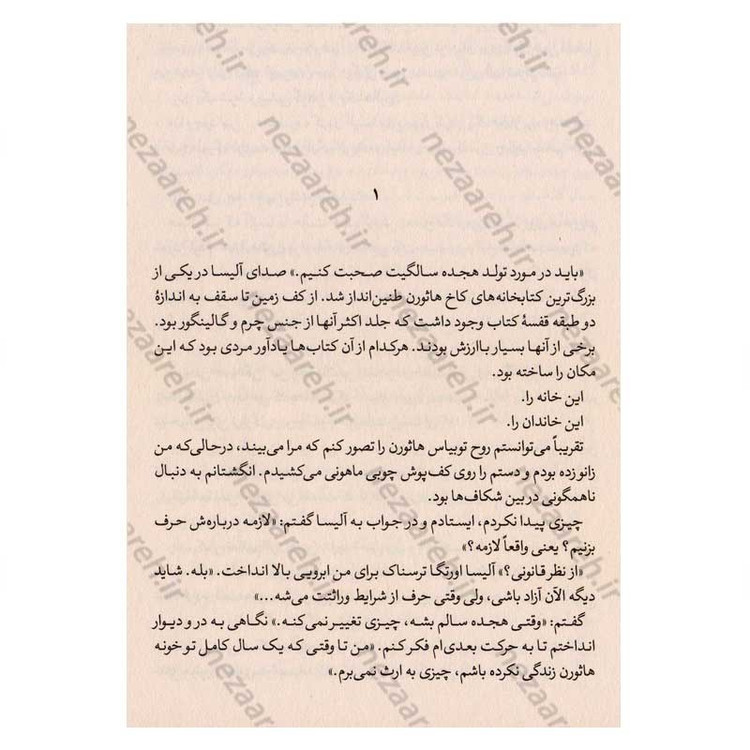 ۱
«باید در مورد تولد هجده سالگیت صحبت کنیم.» صدای آلیسا در یکی از
بزرگ‌ترین کتابخانه‌های کاخ هاثورن طنین‌انداز شد. از کف زمین تا سقف به اندازهٔ
دو طبقه قفسهٔ کتاب وجود داشت که جلد اکثر آنها از جنس چرم و گالینگور بود.
برخی از آنها بسیار باارزش بودند. هرکدام از آن کتاب‌ها یادآور مردی بود که این
مکان را ساخته بود.
این خانه را.
این خاندان را.
تقریباً می‌توانستم روح توبیاس هاثورن را تصور کنم که مرا می‌بیند، درحالی‌که من
زانو زده بودم و دستم را روی کف‌پوش چوبی ماهونی می‌کشیدم. انگشتانم به دنبال
ناهمگونی در بین شکاف‌ها بود.
چیزی پیدا نکردم، ایستادم و در جواب به آلیسا گفتم: «لازمه درباره‌ش حرف
بزنیم؟ یعنی واقعاً لازمه؟»
«از نظر قانونی؟» آلیسا اورتگا ترسناک برای من ابرویی بالا انداخت. «بله. شاید
دیگه الآن آزاد باشی، ولی وقتی حرف از شرایط وراثتت می‌شه...»
گفتم: «وقتی هجده سالم بشه، چیزی تغییر نمی‌کنه.» نگاهی به در و دیوار
انداختم تا به حرکت بعدی‌ام فکر کنم. «من تا وقتی که یک سال کامل تو خونه
هاثورن زندگی نکرده باشم، چیزی به ارث نمی‌برم.»
nezaareh.ir